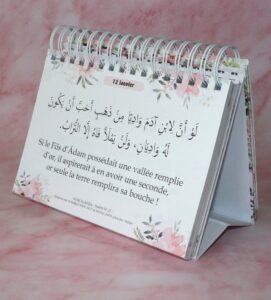 12 Janvier
لَوْ أَنَّ لِابْنِ آدَمَ وَادِيًا مِنْ ذَهَبٍ أَحَبَّ أَنْ يَكُونَ
لَهُ وَادِيَانِ، وَلَنْ يَمْلَأَ فَاهُ إِلَّا التُّرَابُ.
Si le Fils d'Adam possédait une vallée remplie
d'or, il aspirerait à en avoir une seconde,
or seule la terre remplira sa bouche !